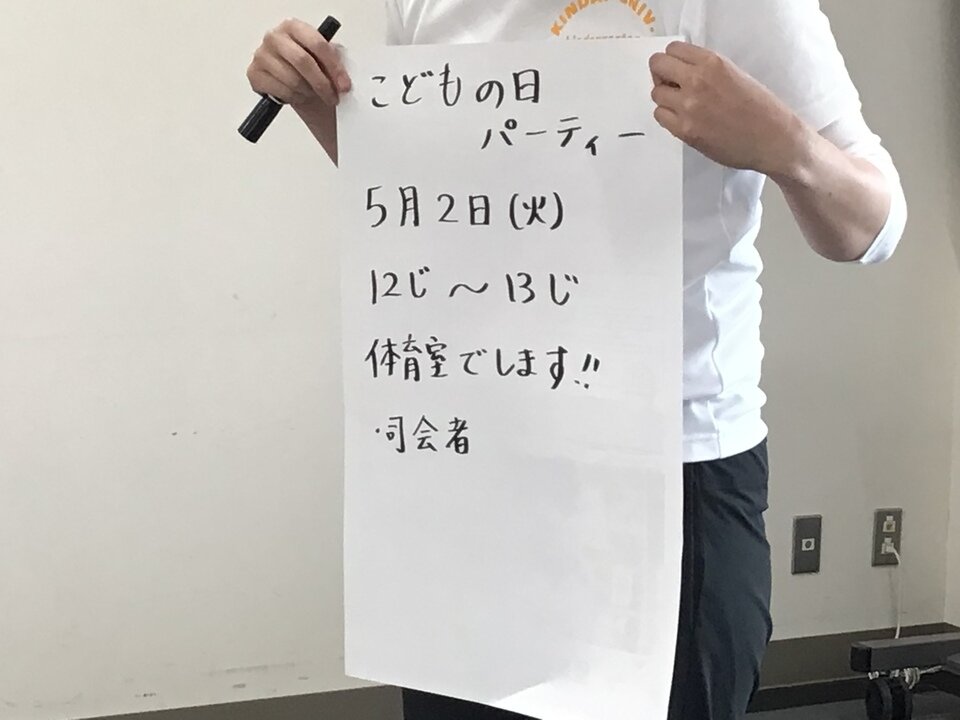 KINDAI UNIV.
こどもの日
パーティー
5月2日(火)
12じ～13じ
体育室でします!!
・司会者